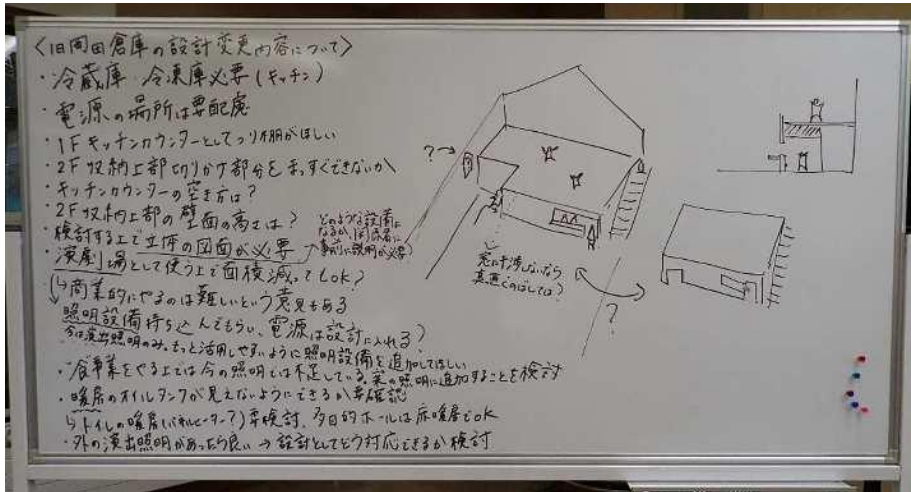 〈旧岡田倉庫の設計変更内容について〉
・冷蔵庫・冷凍庫必要(キッチン)
・電源の場所は要配慮
・1Fキッチンカウンターとしてつり棚がほしい
・2F収納上部切りかけ部分をまっすぐできないか
・キッチンカウンターの空き方は?
・2F収納上部の壁面の高さは?
・検討する上で立体の図面が必要
どのような設備に
なるか、関係者に
事前に説明が必要
・演劇場として使う上で面積減ってもOK?
↳商業的にやるのは難しいという意見もある
照明設備持ち込んでもらい、電源は設計に入れる)
今は演出照明のみ。もっと活用しやすいように照明設備を追加してほしい
・食事業をやる上では今の照明では不足している。案の照明に追加することを検討
・暖房のオイルタンクが見えないようにできるか要確認
↳トイレの暖房(パネルヒーター?)要検討、多目的ホールは床暖房でOK
・外の演出照明があったら良い→設計としてどう対応できるか検討
?
窓に干渉しないなら
真直ぐのばしては?
?